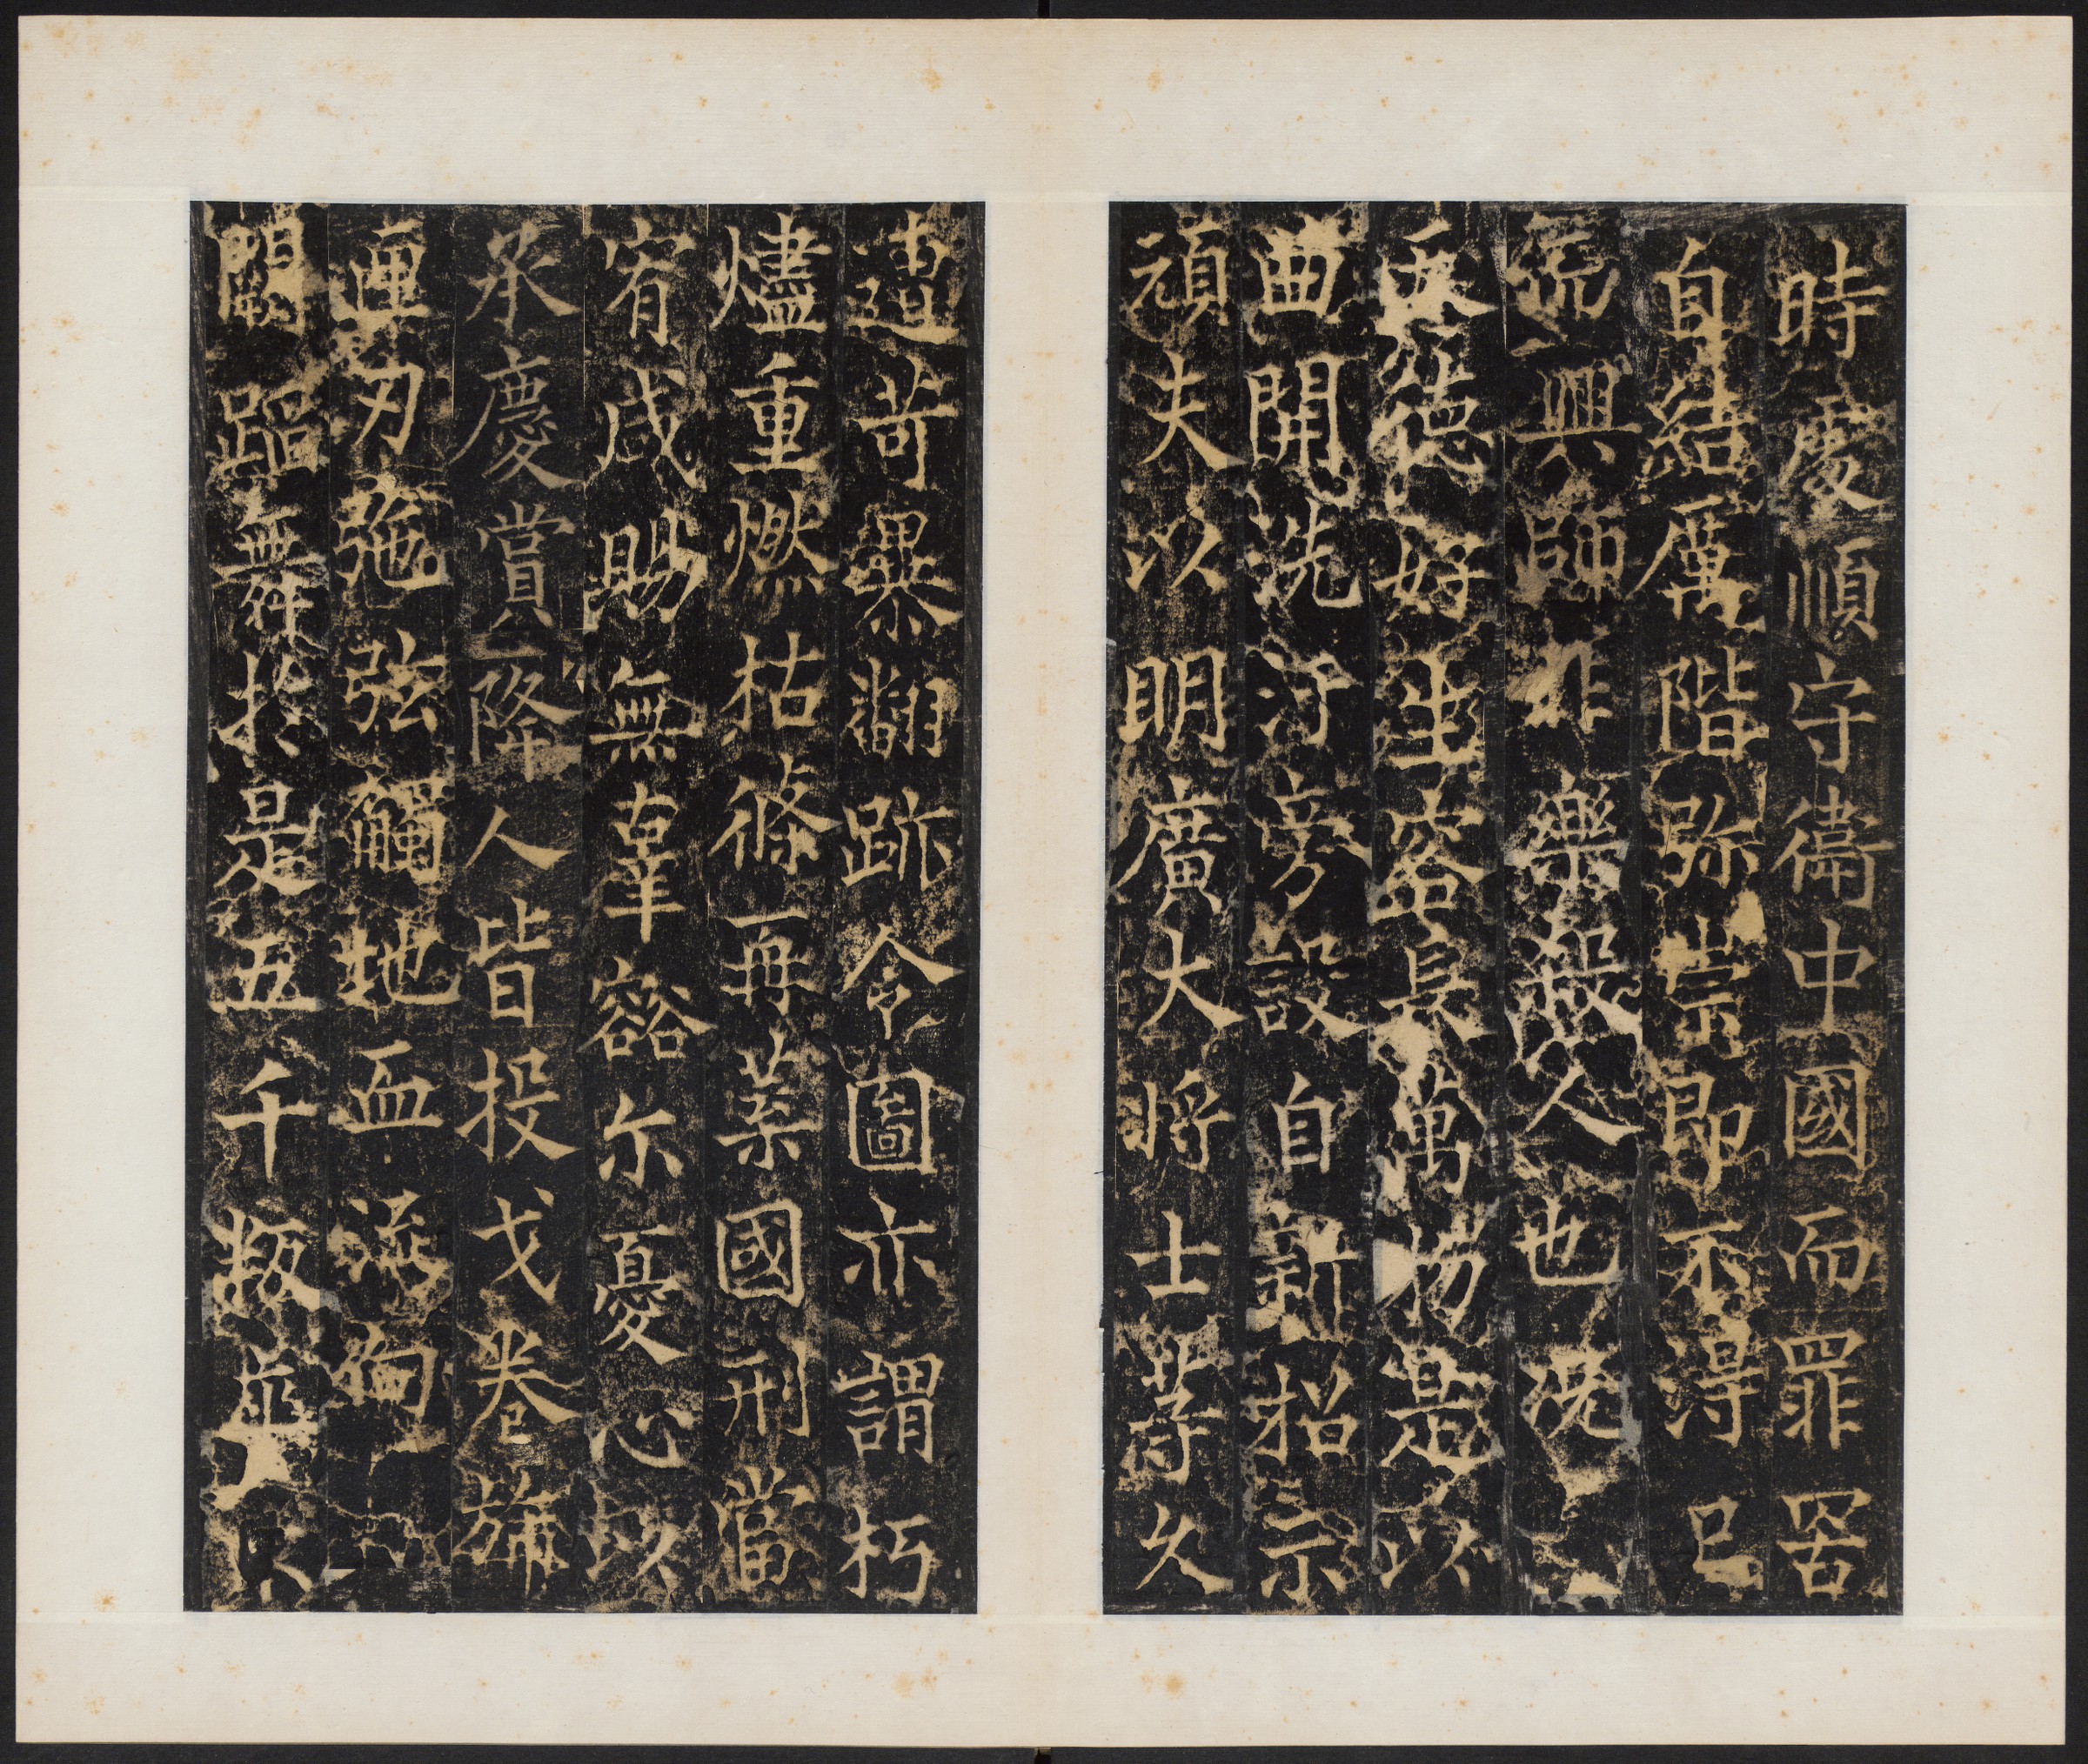 時處順守衛中國而罪罟
自結厲階弥崇即不得已
流興師非樂殺人也況
德好生容長萬物是以
曲開洗汙旁設自新招示
頑夫以明廣大將士等久
遭苛暴翻跡令圖亦謂朽
燼重燃枯條再蘂國刑當
宥咸賜無辜豁尒憂心以
承慶賞降人皆投戈卷旆
匣刃弛弦觸地血流
闕蹈舞於是五千叛